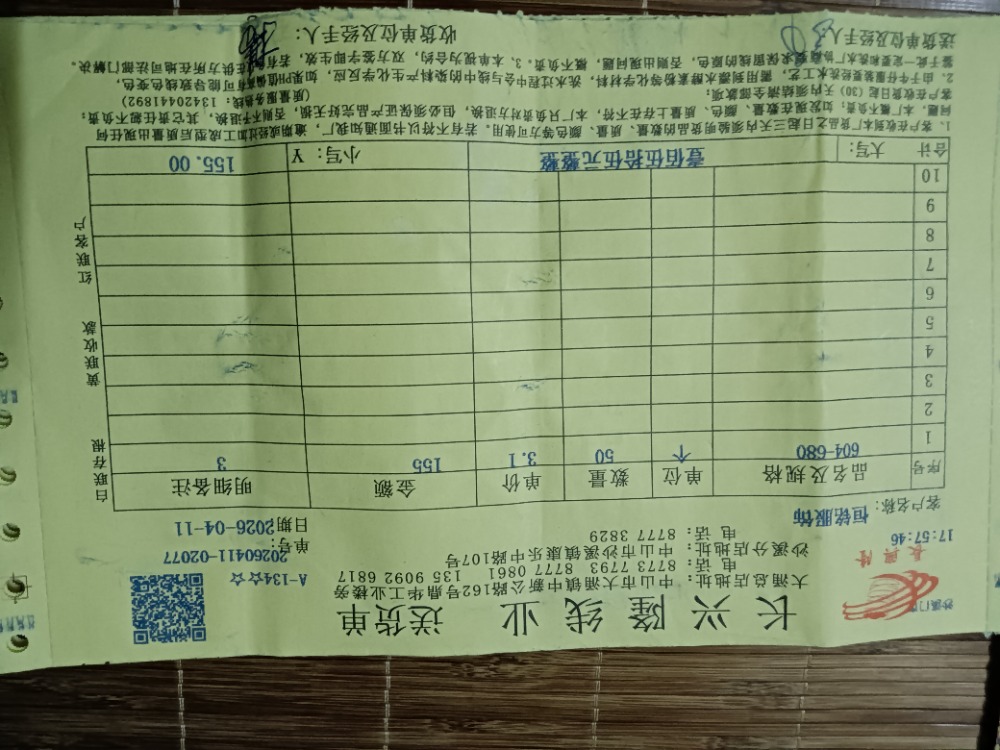 长兴隆线业 送货单
沙溪门市
长兴隆
大涌总店地址：中山市大涌镇中新公路162号鼎华工业楼旁
电 话：8773 7793 8777 0861 135 9092 6817
沙溪分店地址：中山市沙溪镇康乐中路107号
电 话：8777 3829
A-134☆☆☆
单号：20260411-02077
17:57:46
客户名称：恒铭服饰
日期2026-04-11
序号 品名及规格 单位 数量 单价 金额 明细备注
1 604-680 个 50 3.1 155 3
2
3
4
5
6
7
8
9
10
合计 大写： 壹佰伍拾伍元整整 小写：￥ 155.00
白联存根 黄联收款 红联客户
1、客户在收到本厂货品之日起三天内须验明货品的数量、质量、颜色等方可使用。若有不符以书面通知我厂，逾期或经过加工成型后质量出现任何
问题，本厂概不负责：如发现在数量、颜色、质量上存在不符，本厂只负责对方退换，但必须保证产品完好无损，否则不予退换，其它责任概不负责：
客户在收货日起（30）天内须结清全部款项： （质量服务热线：13420441892）
2、由于牛仔服装要经洗水工艺，需用到漂水酵素粉等化学材料，洗水过程中会与线中的染料产生化学反应，如果PH值偏高有可能导致线色变色，
3、本单视为合约，双方签字即生效，若有
送货单位及经手人： 收货单位及经手人：